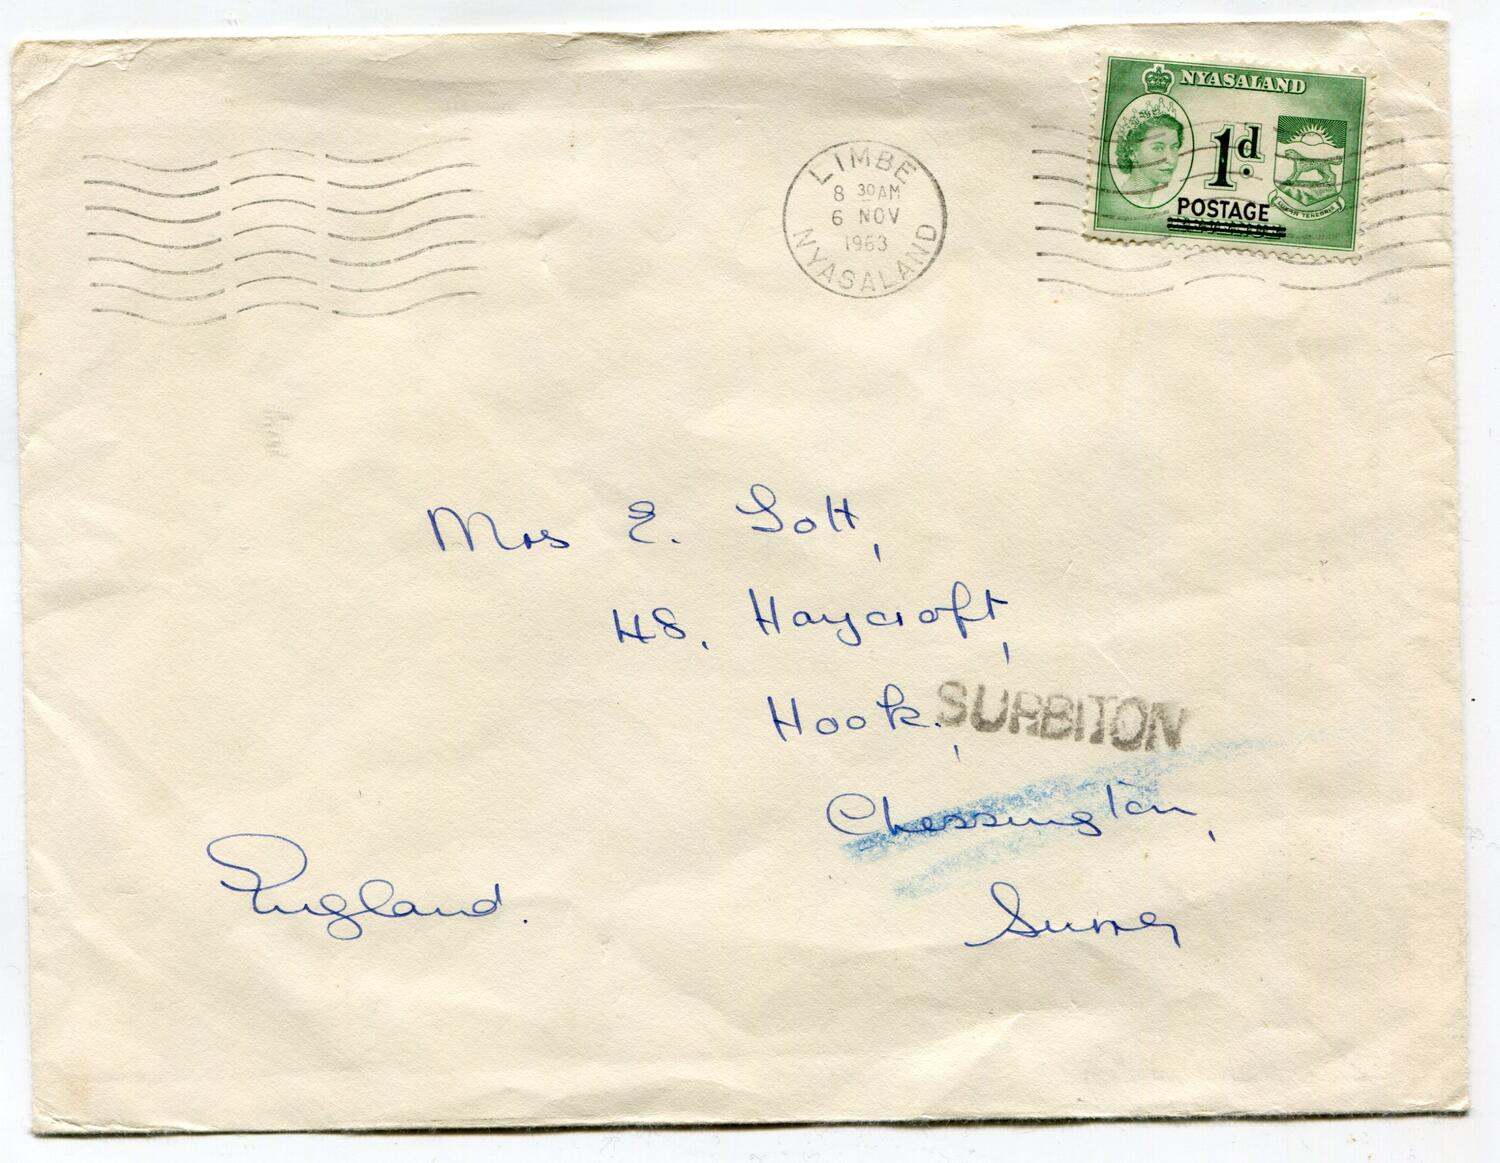 NYASALAND
1d
POSTAGE
LIMBE
8 30AM
6 NOV
1963
NYASALAND
Mrs E. Lott,
48, Haycroft,
Hook,
SURBITON
Chessington,
Surrey
England.